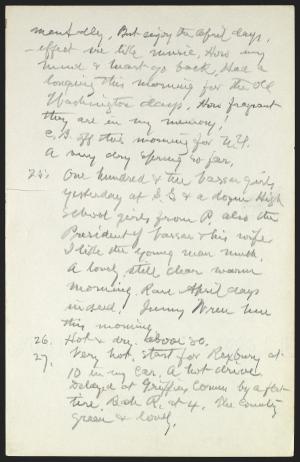 mentally, But enjoy the April days,
effect me like music, How my
mind & heart go back, Had a
longing this morning for the old
Washington days. How fragrant
they are in my memory!
C.B. off this morning for N.Y.
A very dry spring so far,
25. One hundred & ten Vassar girls
yesterday at S.S & a dozen High
School girls from P. also the
President of Vassar & his wife
I like the young man much.
A lovely still clear warm
morning. Rare April days
indeed. Jenny Wren here
this morning.
26. Hot & dry, above 80.
27. Very hot. start for Roxbury at
10 in my car. A hot drive
Delayed at Griffins Corners by a flat
tire. R. at 4. The country
green & lovely.